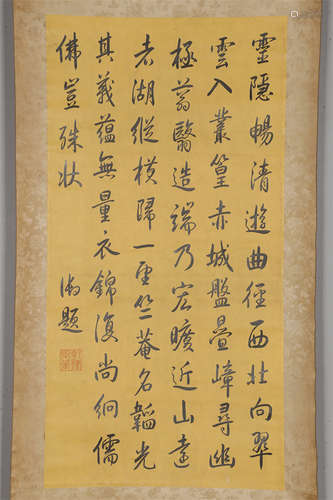 靈隱暢清遊曲徑西北向翠
雲入叢篁赤城盤疊嶂尋幽
極蓊翳造端乃宏曠近山遠
者湖縱橫歸一望竺菴名韜光
其義蘊無量衣錦復尚絅儒
佛豈殊狀
御題